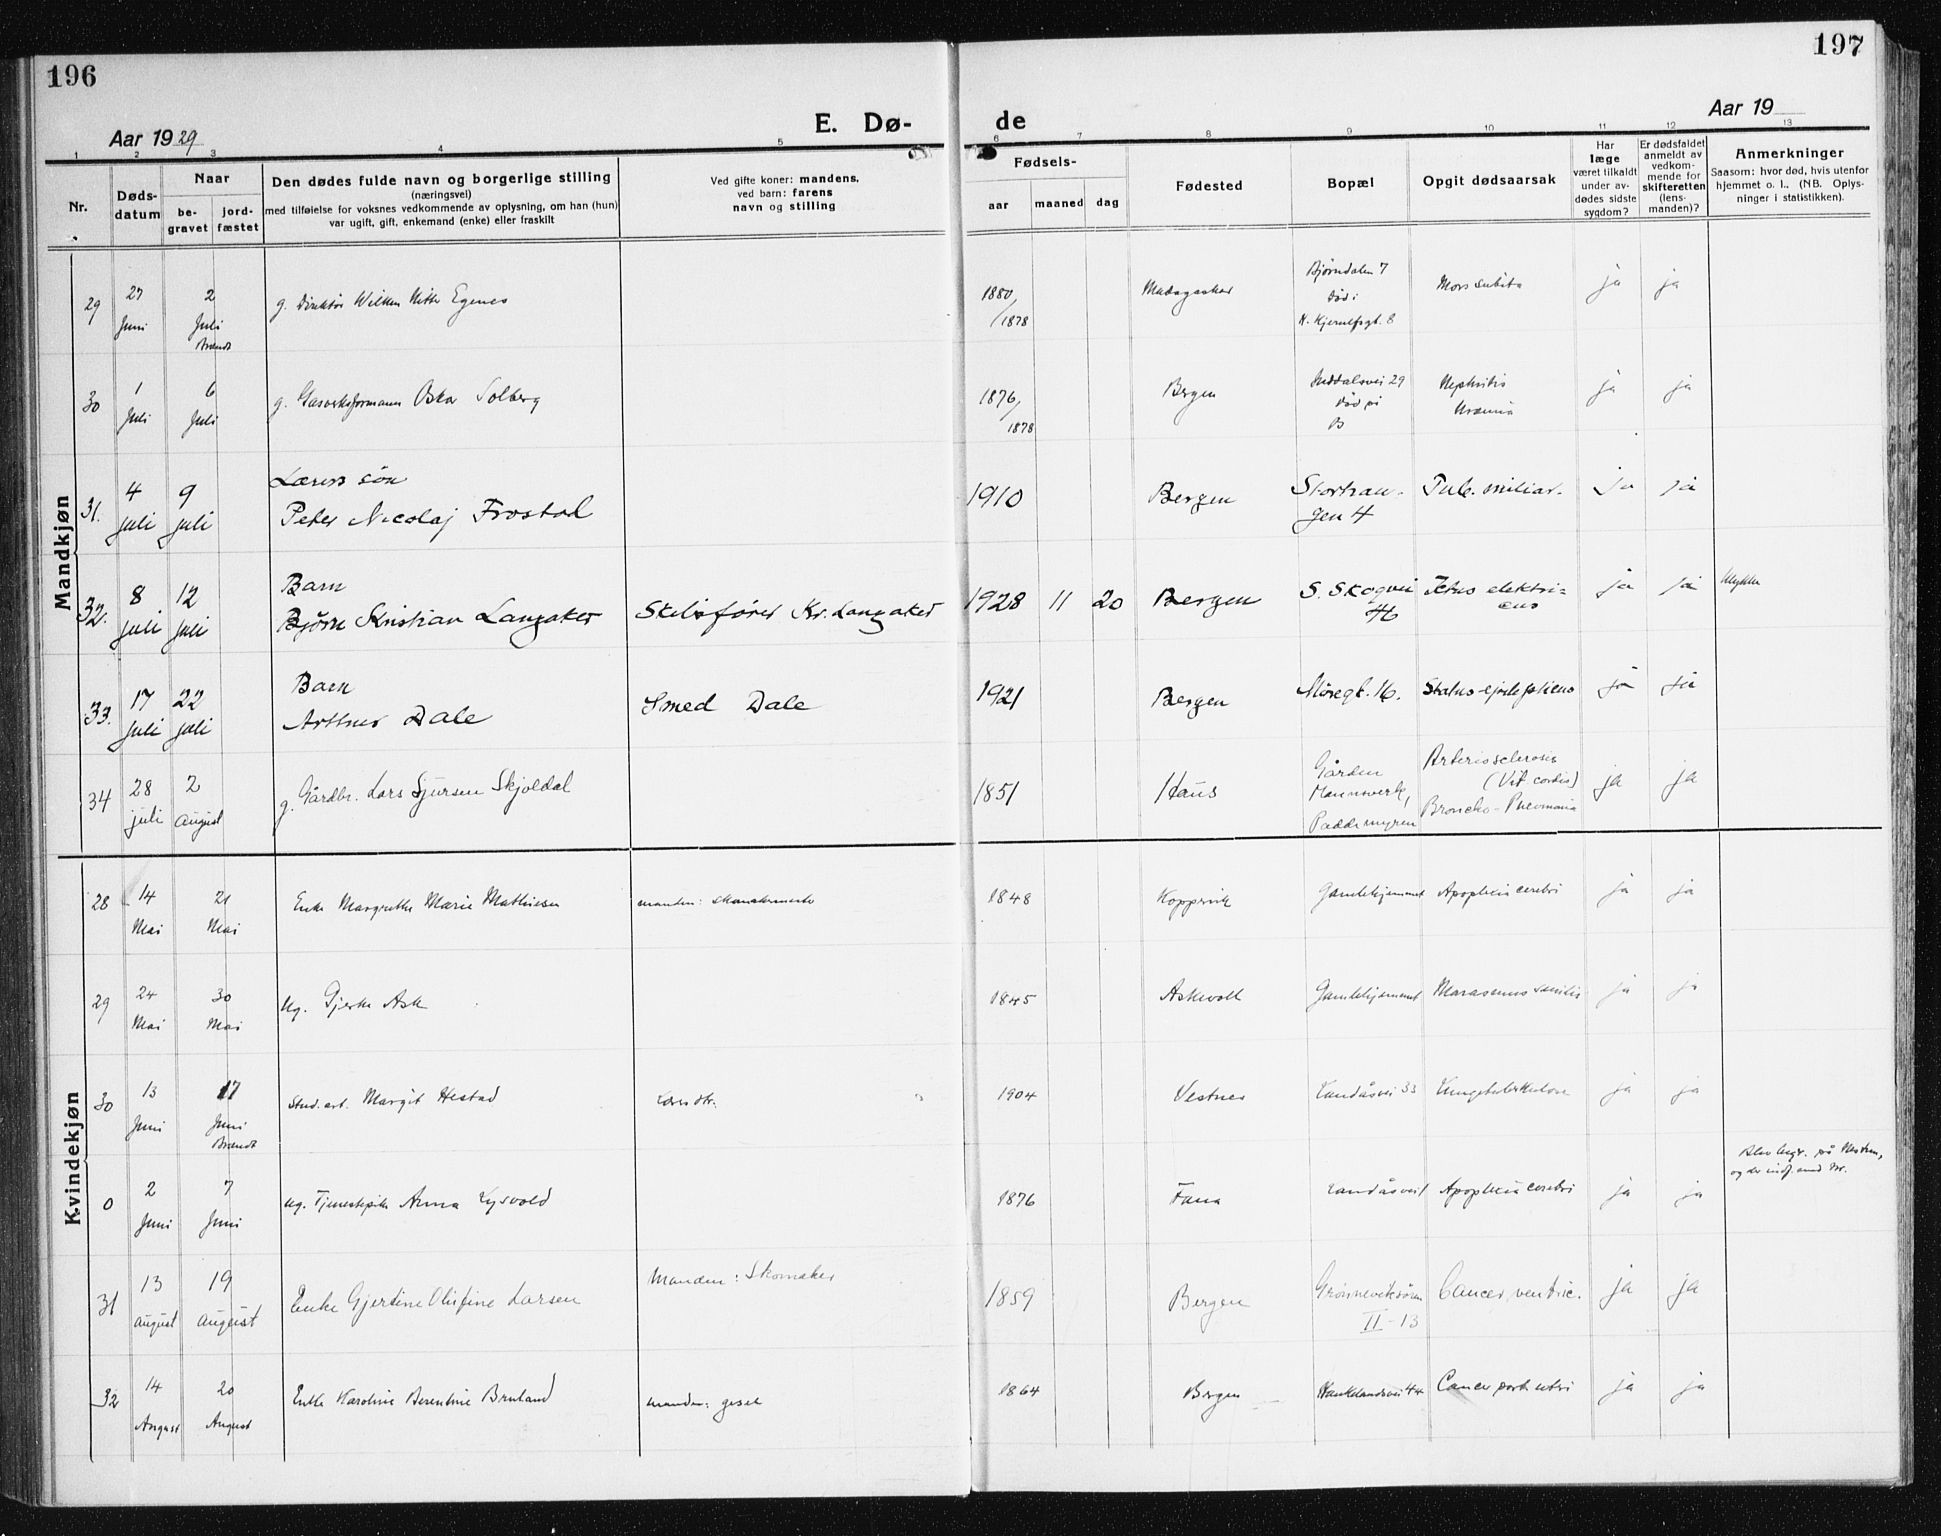 196
197
Aar 1929
E. Dø-
de
Aar 19
1 2 3 4 5 6 7 8 9 10 11 12 13
Nr.
Døds-
datum
Naar
be-
gravet
jord-
fæstet
Den dødes fulde navn og borgerlige stilling
(næringsvei)
med tilføielse for voksnes vedkommende av oplysning, om han (hun)
var ugift, gift, enkemand (enke) eller fraskilt
Ved gifte koner: mandens,
ved barn: farens
navn og stilling
Fødsels-
aar maaned dag
Fødested
Bopæl
Opgit dødsaarsak
Har
læge
været tilkaldt
under av-
dødes sidste
sygdom?
Er dødsfaldet
anmeldt av
vedkom-
mende for
skifteretten
(lens-
manden)?
Anmerkninger
Saasom: hvor død, hvis utenfor
hjemmet o. l., (NB. Oplys-
ninger i statistikken).
Mandkjøn
29 27 Juni 2 Juli Brændt g. Direktør Wilken Egenes 1880/1878 Madagaskar Bjørndalen 7 død i Mors subita ja ja
30 1 Juli 6 Juli g. Gasverksformann Oskar Solberg 1876/1878 Bergen 29 død på Nephritis Uræmia ja ja
31. 4 juli 9 juli Lærers søn
Peter Nicolaj Frostad 1910 Bergen Stortran-
gen 4 Tub. miliar. ja ja
32. 8 juli 12 juli Barn
Bjørn Kristian Langaker Kr. Langaker 1928 11 20 Bergen S. Skogvei Ictus elektri-
cus ja ja Ulykke
33. 17 juli 22 juli Barn
Dale Smed Dale 1921 Bergen Møregt. 16. Status epilepticus ja ja
34 28 juli 2 august g. Gårdbr. Lars Sjursen Skjoldal 1851 Haus Gården
Mannsverk,
Paddemyren Arteriosclerosis
(Vit. cordis)
Broncho-Pneumonia ja ja
Kvindekjøn
28 14 Mai 21 Mai Enke Margrethe Marie Mathiesen manden: 1848 Koppervik Gamlehjemmet Apoplexia cerebri ja ja
29 24 Mai 30 Mai ug. Gjerte Ask 1845 Askvoll Gamlehjemmet Marasmus senilis ja ja
30 13 Juni 17 Juni Brændt Stud. art. Margit Hestad Lærer dtr. 1904 Vestnes Landåsvei 33 Lungetuberkulose ja ja
0 2 Juni 7 Juni ug. Tjenestepike Anna Lysvold 1876 Fana Landåsvei 1 Apoplexia cerebri ja ja
31 13 august 19 august Enke Gjertine Olufine Larsen Manden: Skomaker 1859 Bergen Grønneviksøren
II-13 Cancer ventric. ja ja
32 14 August 20 August Enke Karoline Berentine Bruland manden: gesel 1864 Bergen Haukelandsvei 44 Cancer port. uteri ja ja